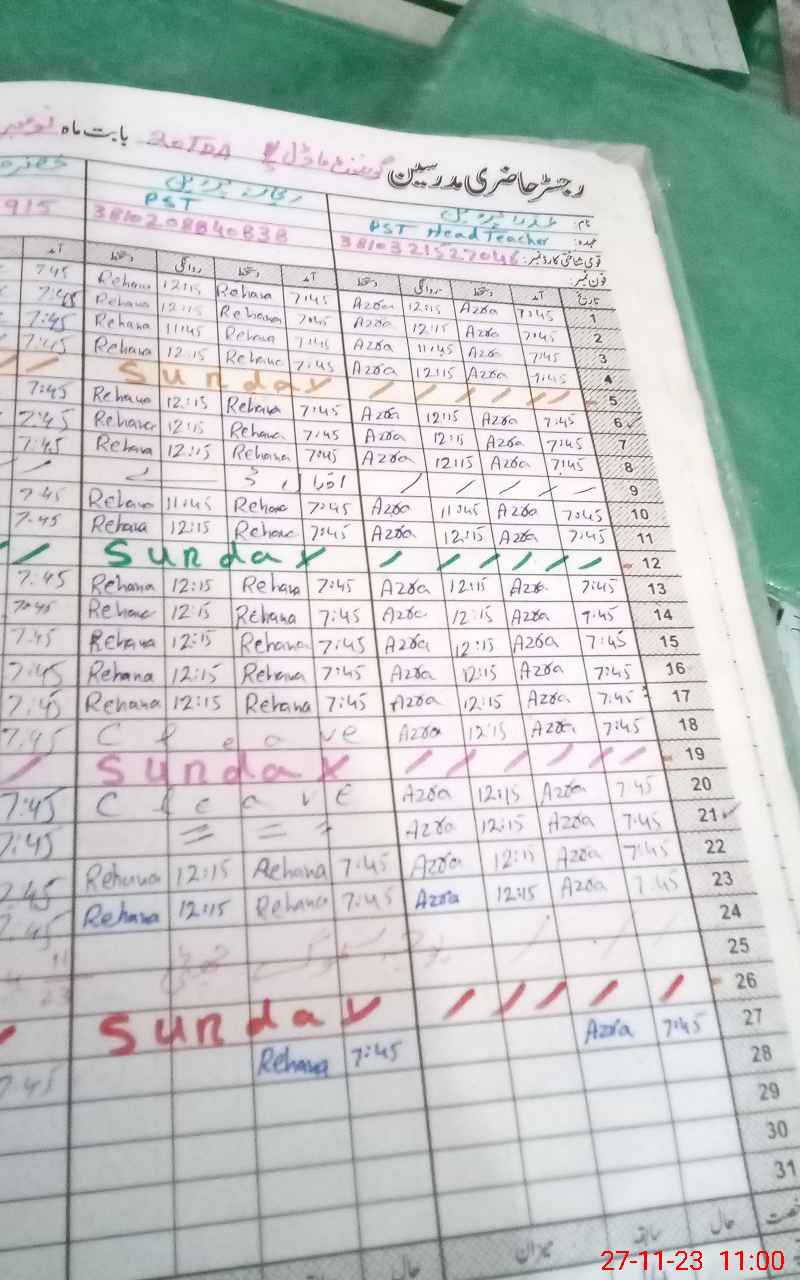 رجسٹر حاضری مدرسین گورنمنٹ ماڈل بابت ماہ نومبر
نام:
عہدہ: PST Head Teacher PST
قومی شناختی کارڈ نمبر: 3810321527046 3810208840838 915
فون نمبر:
تاریخ آمد دستخط روانگی دستخط آمد دستخط روانگی دستخط آمد
1 7:45 Azra 12:15 Azra 7:45 Rehana 12:15 Rehana 7:45
2 7:45 Azra 12:15 Azra 7:45 Rehana 12:15 Rehana 7:45
3 7:45 Azra 11:45 Azra 7:45 Rehana 11:45 Rehana 7:45
4 7:45 Azra 12:15 Azra 7:45 Rehana 12:15 Rehana 7:45
5 Sunday
6 7:45 Azra 12:15 Azra 7:45 Rehana 12:15 Rehana 7:45
7 7:45 Azra 12:15 Azra 7:45 Rehana 12:15 Rehana 7:45
8 7:45 Azra 12:15 Azra 7:45 Rehana 12:15 Rehana 7:45
9
10 7:45 Azra 11:45 Azra 7:45 Rehana 11:45 Rehana 7:45
11 7:45 Azra 12:15 Azra 7:45 Rehana 12:15 Rehana 7:45
12 Sunday
13 7:45 Azra 12:15 Azra 7:45 Rehana 12:15 Rehana 7:45
14 7:45 Azra 12:15 Azra 7:45 Rehana 12:15 Rehana 7:45
15 7:45 Azra 12:15 Azra 7:45 Rehana 12:15 Rehana 7:45
16 7:45 Azra 12:15 Azra 7:45 Rehana 12:15 Rehana 7:45
17 7:45 Azra 12:15 Azra 7:45 Rehana 12:15 Rehana 7:45
18 7:45 Azra 12:15 Azra C leave 7:45
19 Sunday
20 7:45 Azra 12:15 Azra C leave 7:45
21 7:45 Azra 12:15 Azra = = = 7:45
22 7:45 Azra 12:15 Azra 7:45 Rehana 12:15 Rehana 7:45
23 7:45 Azra 12:15 Azra 7:45 Rehana 12:15 Rehana 7:45
24
25
26 Sunday
27 7:45 Azra 7:45 Rehana 7:45
28
29
30
31
حال سابقہ میزان حال
27-11-23 11:00